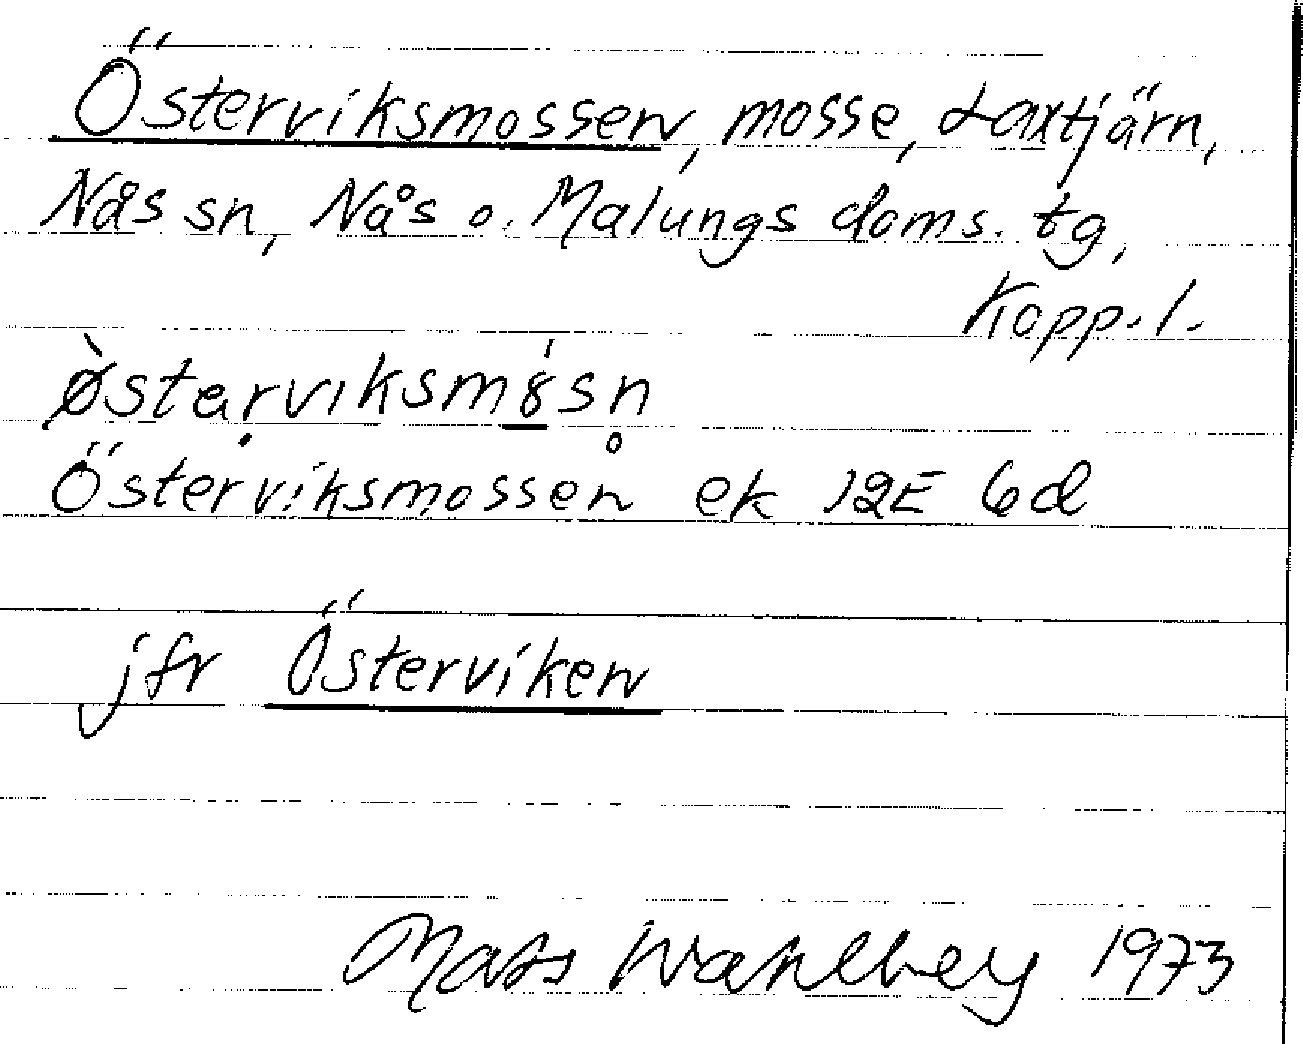 Österviksmossen, mosse, Laxtjärn,
Nås sn, Nås o. Malungs doms. tg,
Kopp. l.
ø̀starvıksmȣ́sn̥
Österviksmossen ek 12E 6d
jfr Österviken
Mats Wahlberg 1973